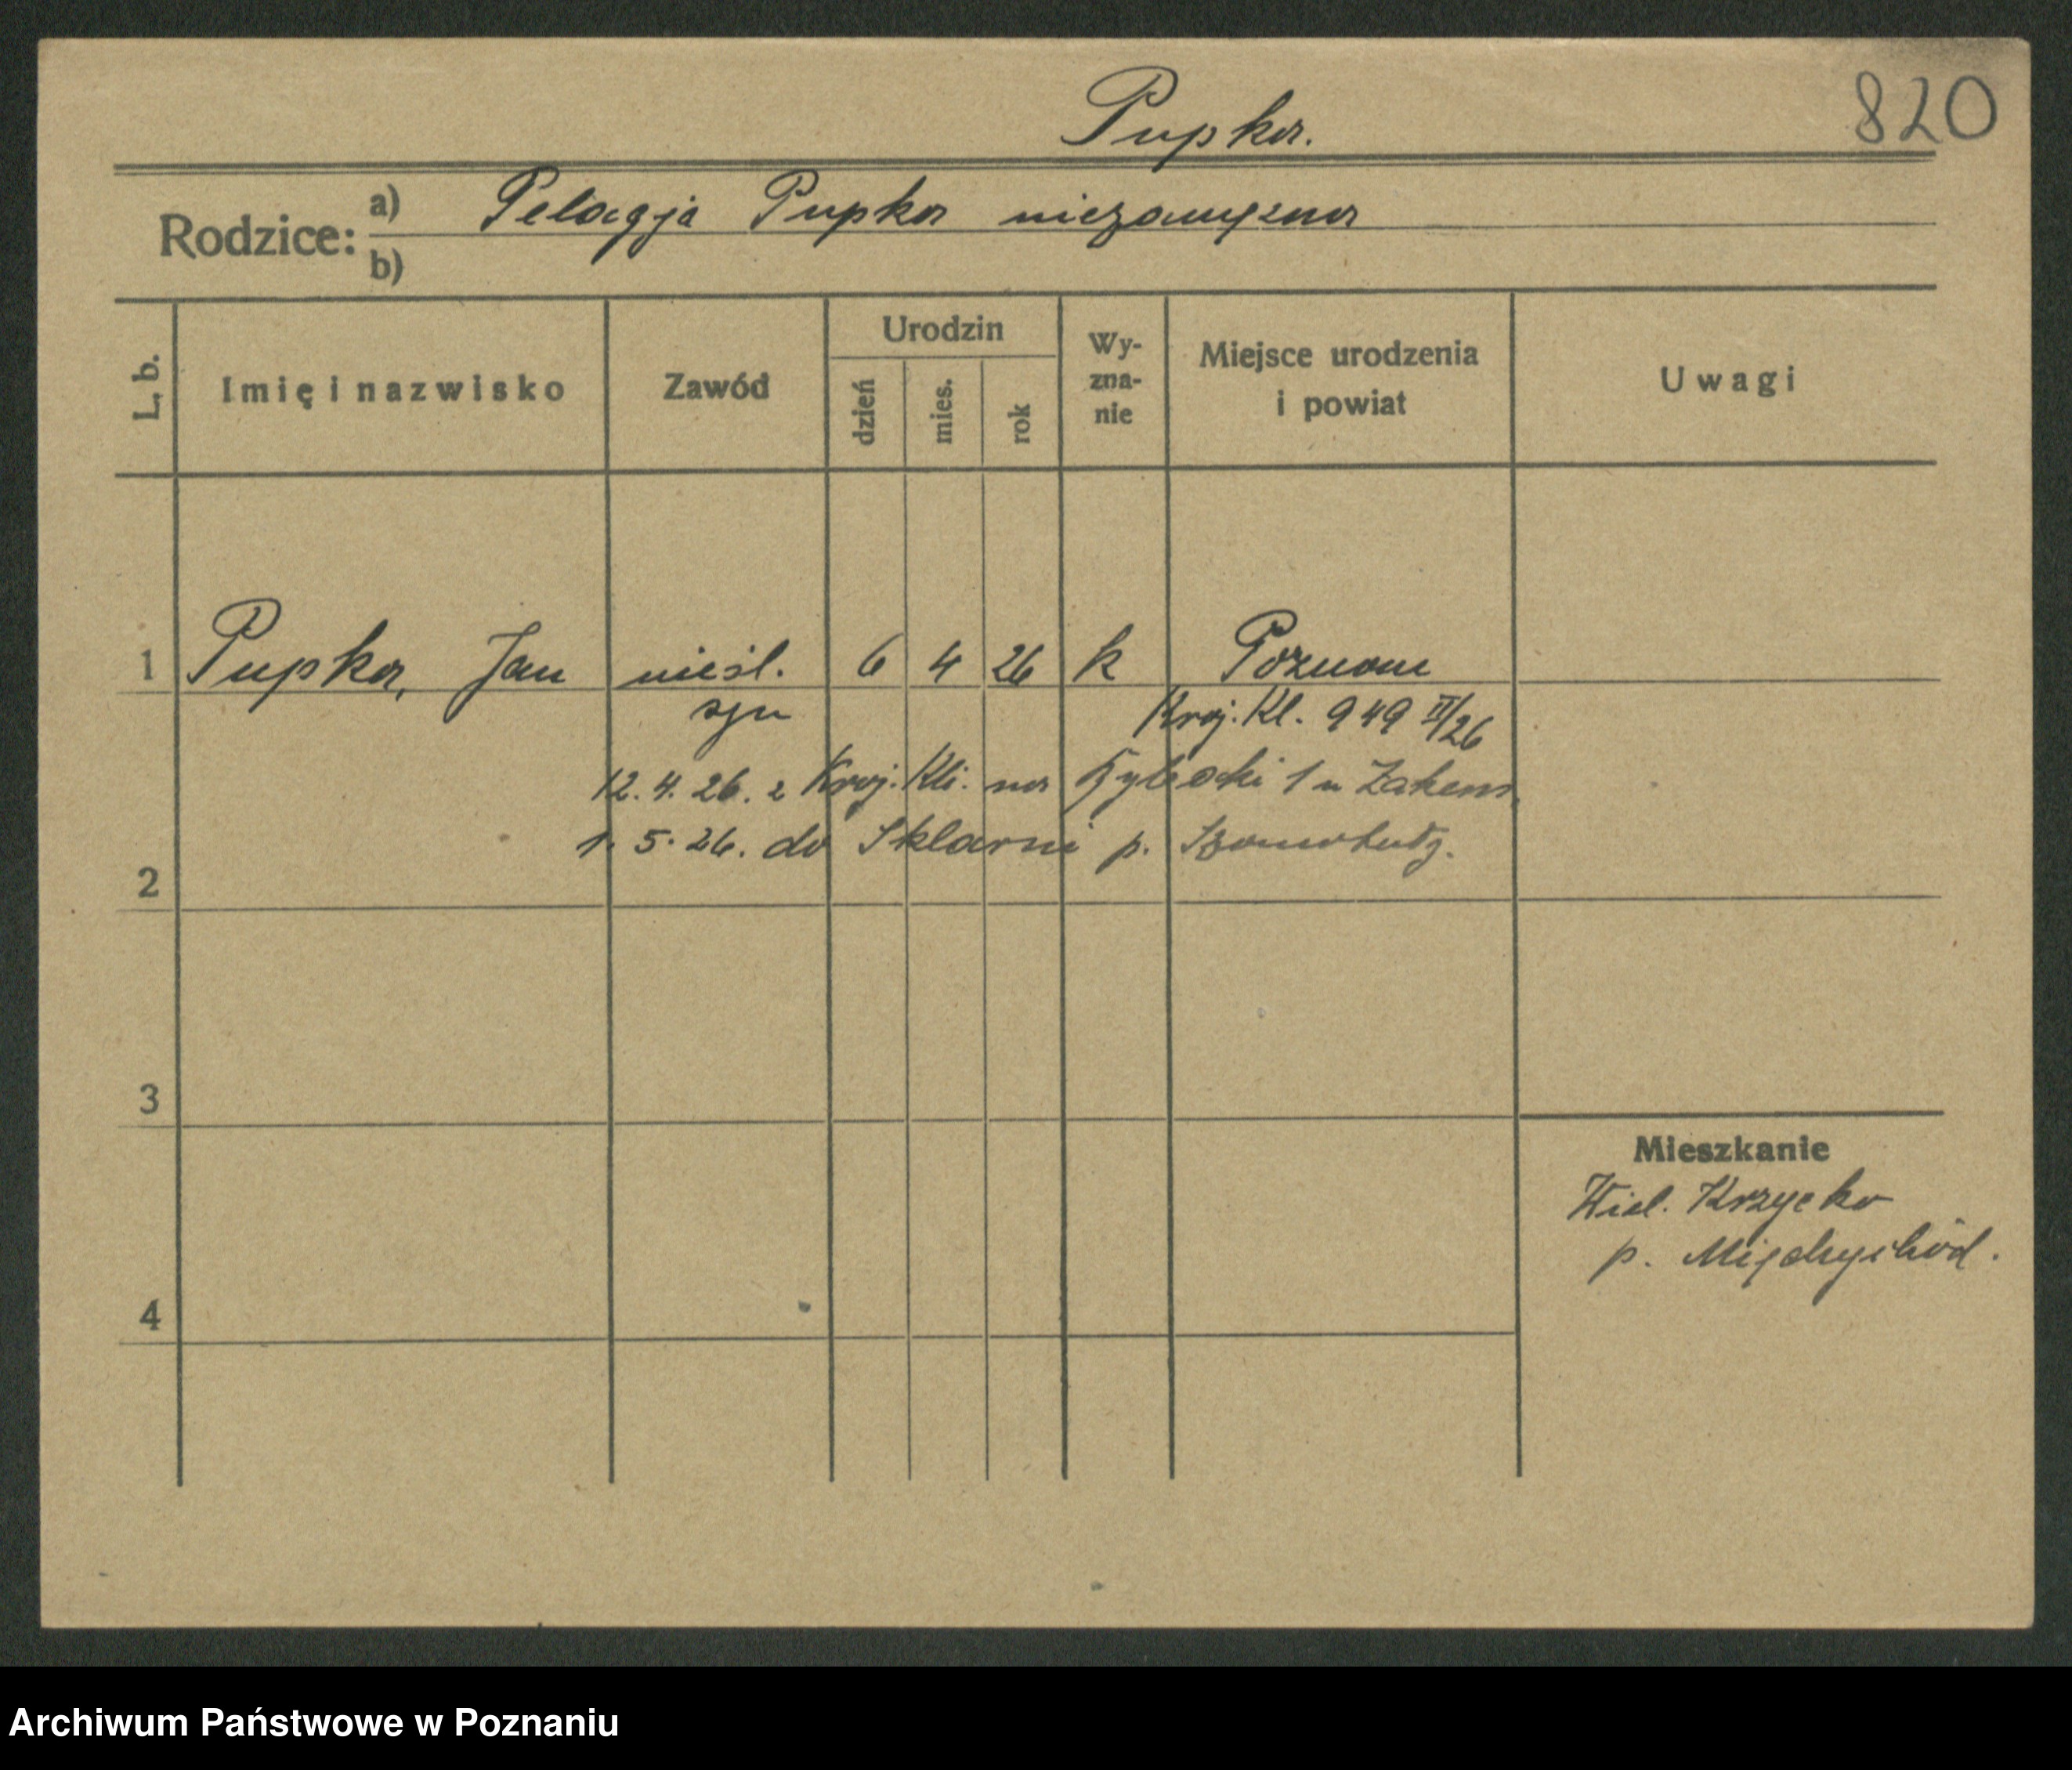 Pupka.
820
Rodzice:
a) Pelagja Pupka niezamężna
b)
L. b.
Imię i nazwisko
Zawód
Urodzin
dzień
mies.
rok
Wy-
zna-
nie
Miejsce urodzenia
i powiat
Uwagi
1 Pupka, Jan nieśl. 6 4 26 k Poznań
syn Kraj. Kl. 949 II/26
12. 4. 26. z Kraj. Kli. na 1 u
1. 5. 26. do Sklarni p. Szamotuły.
2
3
4
Mieszkanie
Wiel. Krzycko
p. Międzychód.
Archiwum Państwowe w Poznaniu